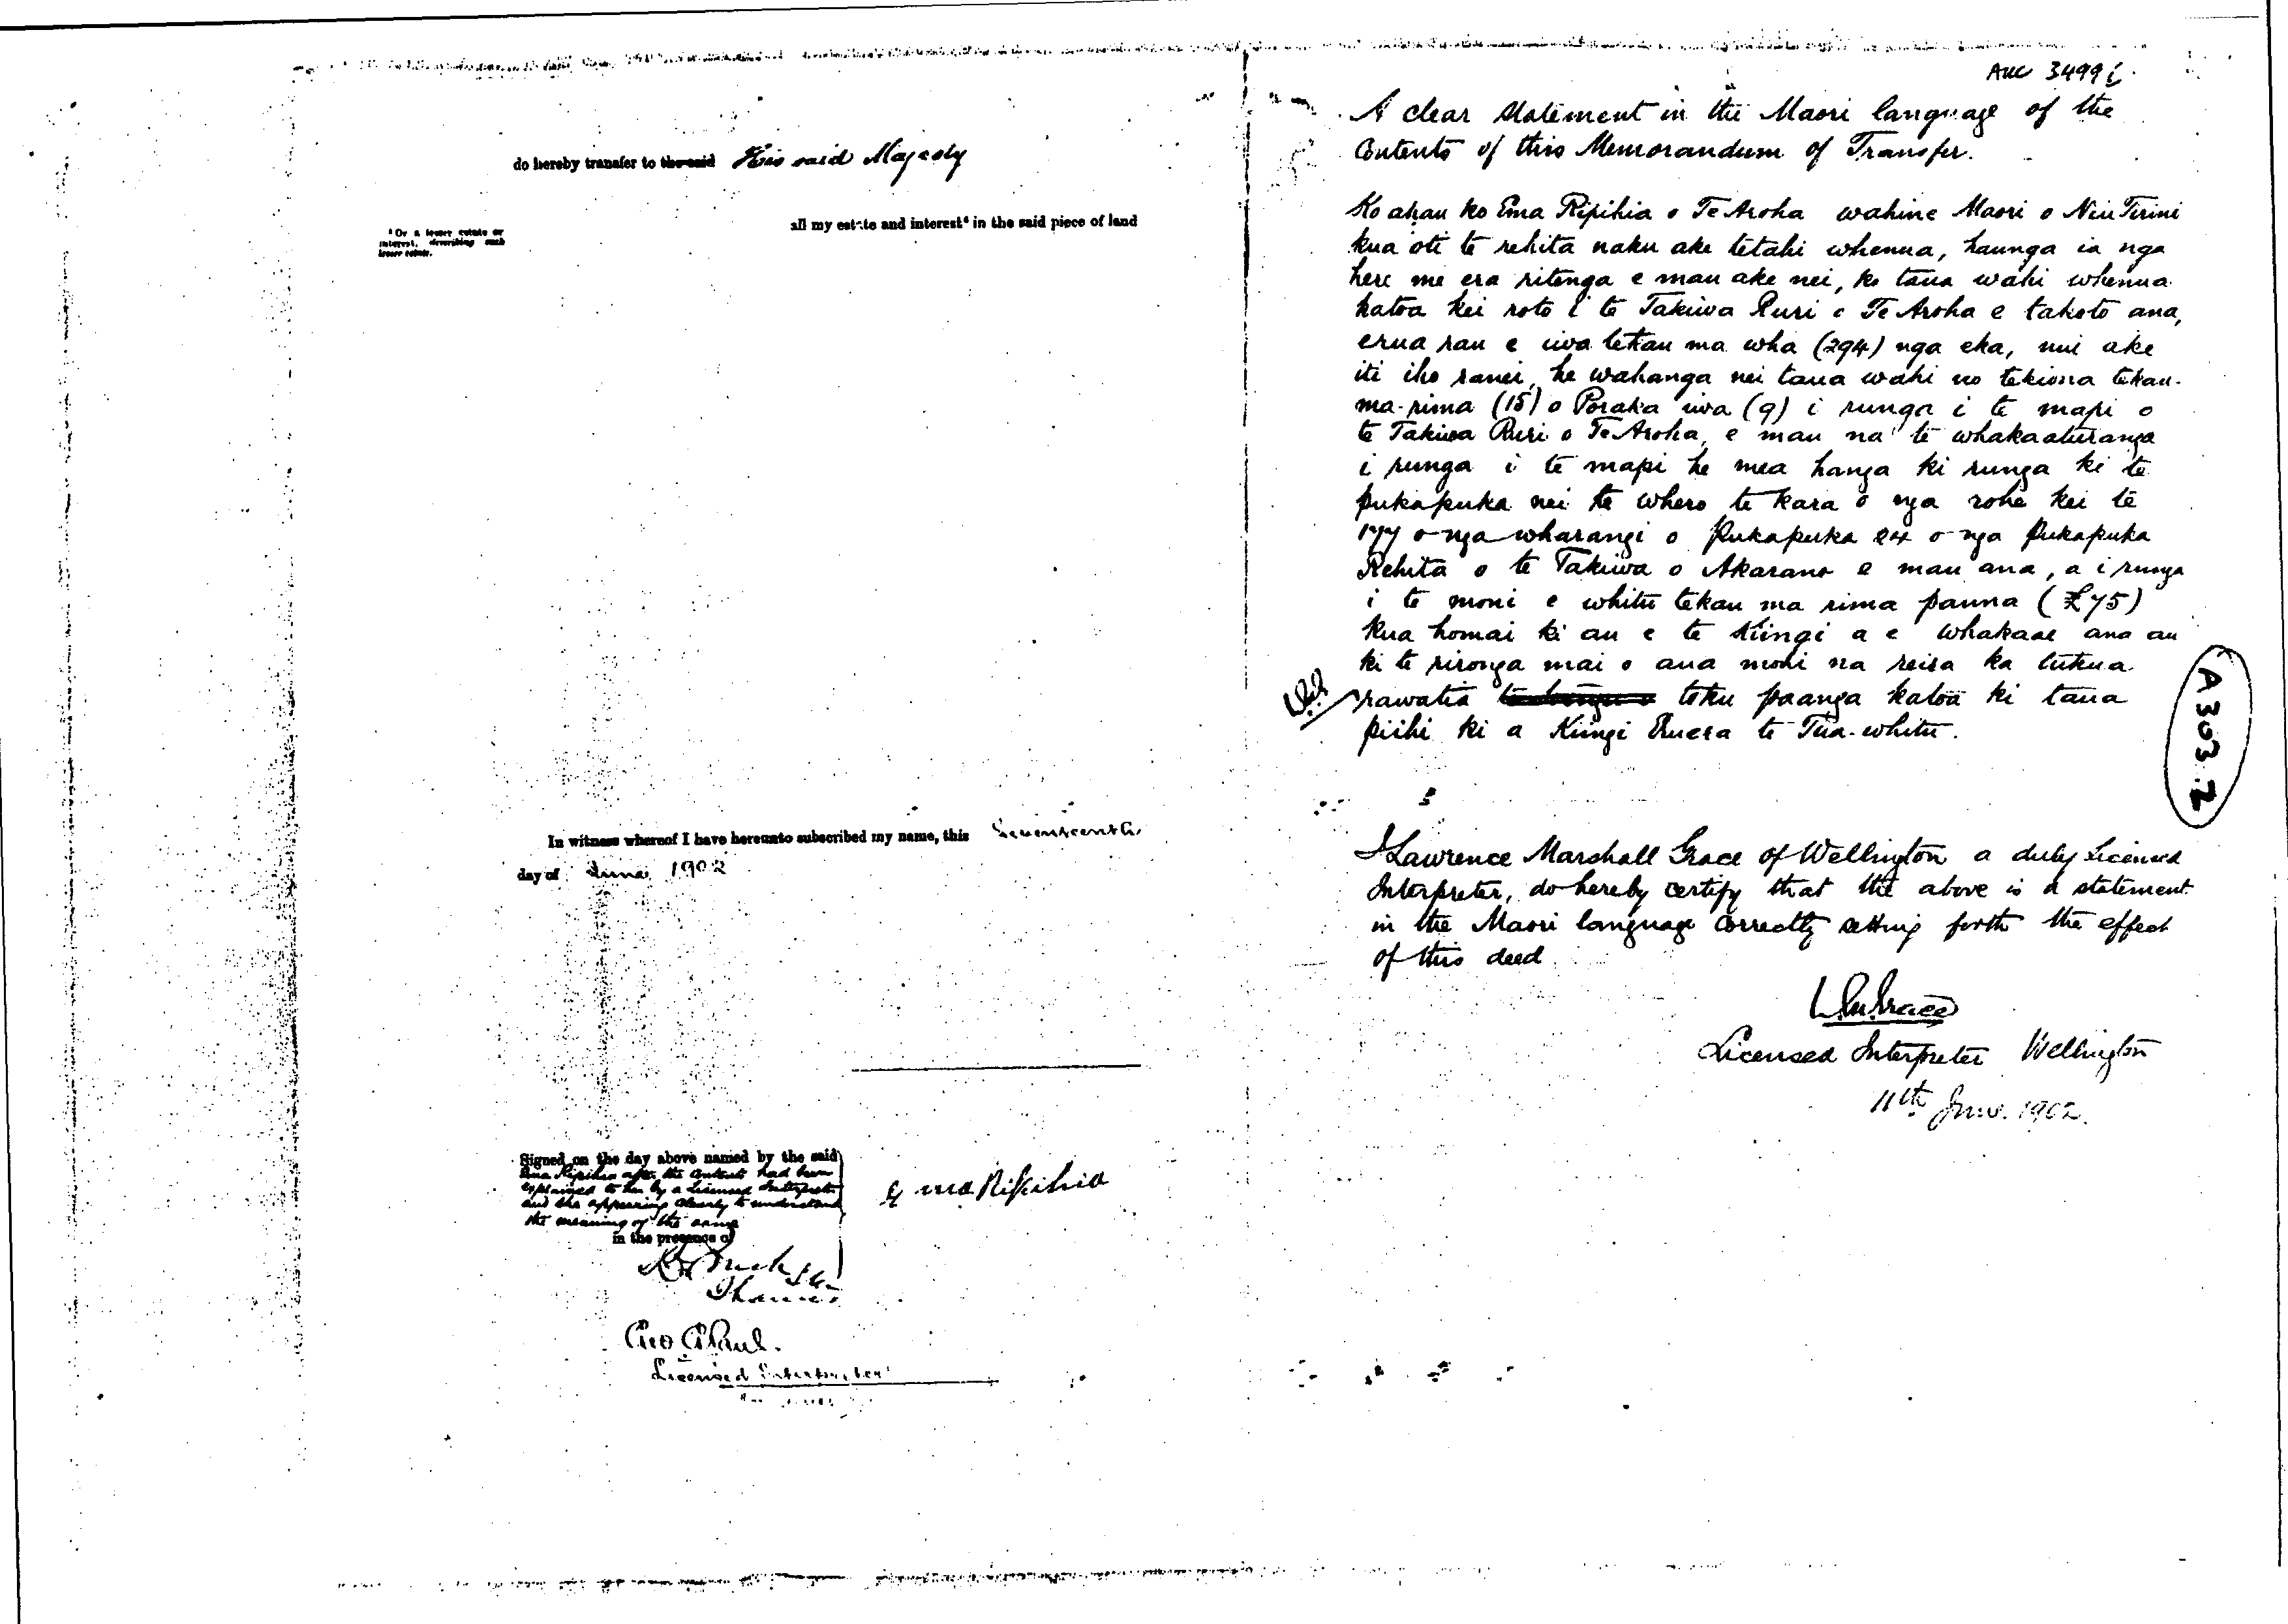 do hereby transfer to the said His said Majesty
¹ Or a lesser estate or
interest, describing such
lesser estate.
all my estate and interest¹ in the said piece of land
In witness whereof I have hereunto subscribed my name, this Seventeenth
day of June 1902
Signed on the day above named by the said
Ema Ripihia after the contents had been
explained to her by a Licensed Interpreter
and she appearing clearly to understand
the meaning of the same
in the presence of
Ema Ripihia
Thames
Geo Paul.
Licensed Interpreter
AUC 3499
A clear statement in the Maori language of the
Contents of this Memorandum of Transfer.
Ko ahau ko Ema Ripihia o Te Aroha wahine Maori o Niu Tirini
kua oti te rehita naku ake tetahi whenua, haunga ia nga
here me era ritenga e mau ake nei, ko taua wahi whenua
katoa kei roto i te Takiwa Ruri o Te Aroha e takoto ana,
erua rau e iwa tekau ma wha (294) nga eka, nui ake
iti iho ranei, he wahanga nei taua wahi no tekiona tekau-
ma-rima (15) o Poraka iwa (9) i runga i te mapi o
te Takiwa Ruri o Te Aroha, e mau na te whakaaturanga
i runga i te mapi he mea hanga ki runga ki te
pukapuka nei he whero te kara o nga rohe kei te
177 o nga wharangi o Pukapuka 24 o nga Pukapuka
Rehita o te Takiwa o Akarana e mau ana, a i runga
i te moni e whitu tekau ma rima pauna (£75)
kua homai ki au e te Kiingi a e whakaae ana au
ki te rironga mai o aua moni na reira ka tukua
rawatia toku paanga katoa ki taua
piihi ki a Kiingi Eruera te Tua-whitu.
A 303 2
I Lawrence Marshall Grace of Wellington a duly Licensed
Interpreter, do hereby certify that the above is a statement
in the Maori language correctly setting forth the effect
of this deed
LMGrace
Licensed Interpreter Wellington
11th June 1902.